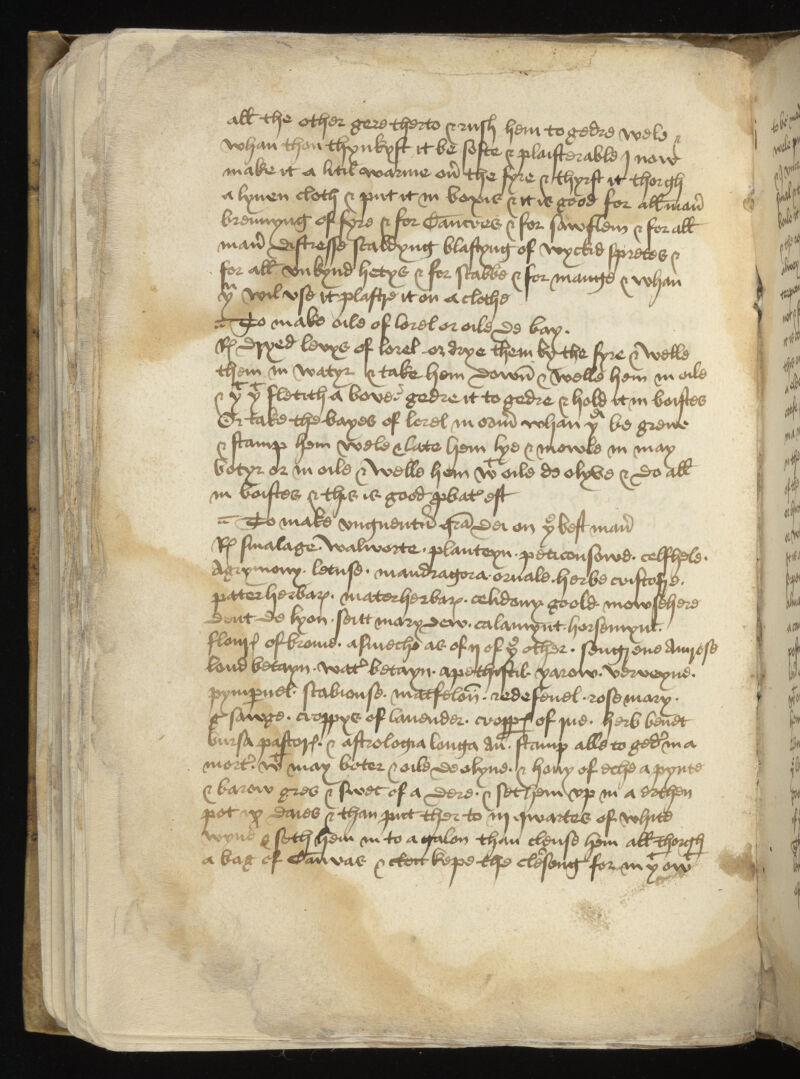 all the other gere therto & rush hem to gedre wele
whan thou thynkyst it be softe & plaisterable I now
make it a litil warme ou̅ the fyre & thyrst it thorgh
a lynen cloth & put it in boxis & it is good for all man̅
brennyng of fyre & for Cancres & for sawflem & for all
man̅ distresse scaldyng blastyng of wyckid spretes &
for all vnkynd hetys & for scabbe & for mange & whan
yu wil vse it plastre it on a clothe
To make oile of lorel or oile de bay.
R dryed levys of lorel or drye them by the fyre & welle
them in watyr & take hem down̅ & welle hem in oile
& yt yt fletith a bove gedre it to gedre & hold it in boistes
Or take the bayes of lorel in whan yei be grene
& stamp hem wele & late hem lye & mowle in may
botyr or in oile & welle hem wt oile de olyve & do all
in boistes & this is good pbat est
To make vnguentu̅ gra̅ dei on ye best man̅
R smalage. walworte. planteyn. peticonsowd. celfhele.
Agrymony. letuse. mandragora. oruale. herbe cristofre.
patterherbar. materherbar. celidony. goold. mowsehere
dent de lyon. seitt mary dew. calamynt. horsemynt.
flour of brome. asmeche as of ij of ye other. sengrene Amrose
lond betayn. wat betayn. yarow. verveyne.
pympnel. scabiouse. matfelon̅. rede fenel. rose mary.
sawge. croppys of lauender. cropp of rue. herb benet
bursa pastor. & astrologia longa an̅. stamp alle to ged in a
mort. wt may boter & oile de olyue. & hony of eche a pynte
& barow gres & swet of a dere. & set hem vp in a erthen
pot ix daies & than put ther to iij qwartes of white
wyne & seth hem in to a galon than clense hem all thorgh
a bag of Canvas & kepe the clensong for in yt ow